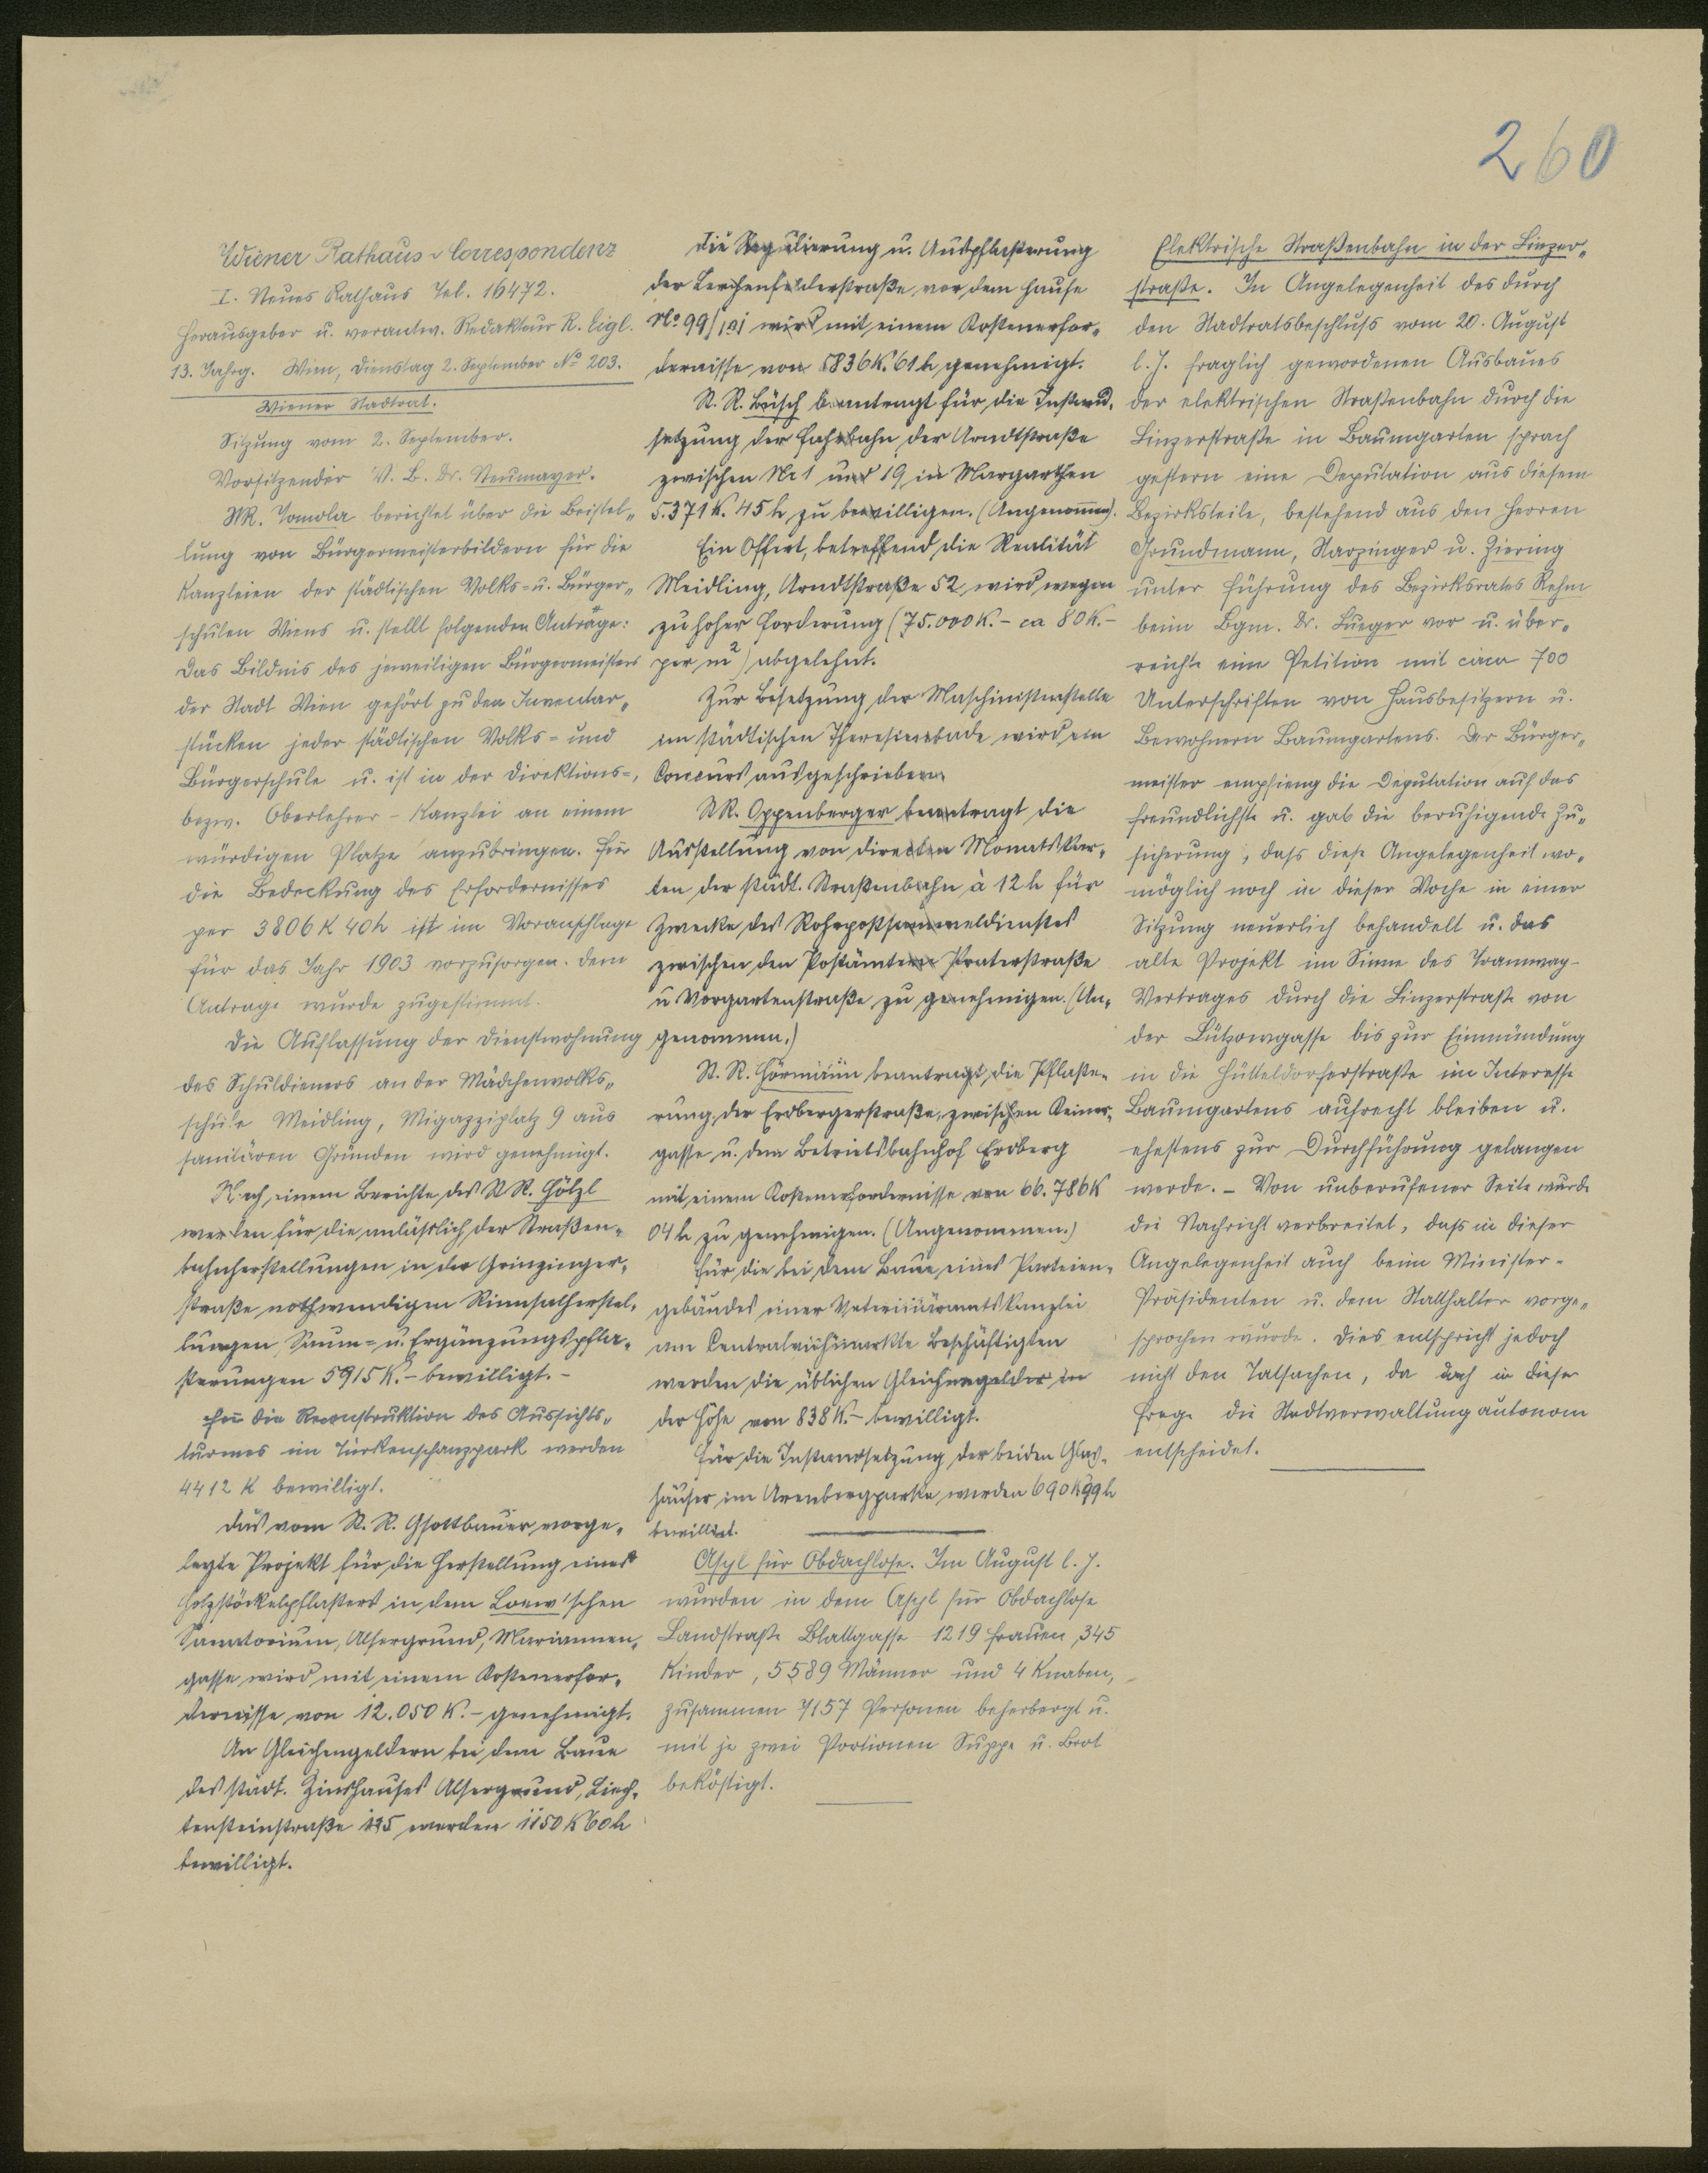 260
Wiener Rathaus-Correspondenz
I. Neues Rathaus Tel. 16472.
Herausgeber u. verantw. Redakteur R. Eigl.
13. Jahrg. Wien, Dienstag 2. September No 203.
Wiener Stadtrat.
Sitzung vom 2. September.
Vorsitzender V. B. Dr. Neumayer.
StR. Tomola berichtet über die Beistel-
lung von Bürgermeisterbildern für die
Kanzleien der städtischen Volks- u. Bürger-
schulen Wiens u. stellt folgenden Anträge:
Das Bildnis des jeweiligen Bürgermeisters
der Stadt Wien gehört zu den Inventar-
stücken jeder städtischen Volks- und
Bürgerschule u. ist in der Direktions-,
bezw. Oberlehrer-Kanzlei an einem
würdigen Platze anzubringen. Für
die Bedeckung des Erfordernisses
per 3806 K 40 h ist im Voranschlage
für das Jahr 1903 vorzusorgen. Dem
Antrage wurde zugestimmt.
Die Auflassung der Dienstwohnung
des Schuldieners an der Mädchenvolks-
schule Meidling, Migazziplatz 9 aus
sanitären Gründen wird genehmigt.
Nach einem Berichte des StR. Hölzl
werden für die anlässlich der Straßen-
bahnherstellungen in der Grinzinger-
straße nothwendigen Rinnsalherstel-
lungen, Saum- u. Ergänzungspfla-
sterungen 5915 K.- bewilligt.-
Für die Reconstruktion des Aussichts-
turmes im Türkenschanzpark werden
4412 K bewilligt.
Das vom St. R. Gsottbauer vorge-
legte Projekt für die Herstellung eines
Holzstöckelpflasters in dem Loew'schen
Sanatorium, Alsergrund, Mariannen-
gasse wird mit einem Kostenerfor-
dernisse von 12.050 K.- genehmigt.
An Gleichengeldern bei dem Baue
des städt. Zinshauses Alsergrund, Liech-
tensteinstraße 125 werden 1150 K 60 h
bewilligt.
Die Regulierung u. Auspflasterung
der Lerchenfelderstraße vor dem Hause
No 99/101 wird mit einem Kostenerfor-
dernisse von 5836 K. 61 h genehmigt.
St. R. Büsch beantragt für die Instand-
setzung der Fahrbahn der Arndtstraße
zwischen Nr 1 und 19 in Margarthen
5.371 K. 45 h zu bewilligen. (Angenommen).
Ein Offert, betreffend die Realität
Meidling, Arndtstraße 52 wird wegen
zu hoher Forderung (75.000 K.- ca 80 K.-
per m²) abgelehnt.
Zur Besetzung der Maschinistenstelle
im städtischen Theresienbade wird ein
Concurs ausgeschrieben.
StR. Oppenberger beantragt die
Ausstellung von direkten Monatskar-
ten der städt. Straßenbahn à 12 h für
Zwecke des Rohrpostsammeldienstes
zwischen den Postämtern Praterstraße
u Vorgartenstraße zu genehmigen. (An-
genommen.)
St. R. Hörmann beantragt, die Pflaste-
rung der Erdbergerstraße, zwischen Keiner-
gasse u. dem Betriebsbahnhof Erdberg
mit einem Kostenerfordernisse von 66.786 K
04 h zu genehmigen. (Angenommen.)
Für die bei dem Baue eines Parteien-
gebäudes einer Veterinäramtskanzlei
am Centralviehmarkte Beschäftigten
werden die üblichen Gleichengelder in
der Höhe von 838 K.- bewilligt.
Für die Instandsetzung der beiden Glas-
häuser im Arenbergparke werden 690 K 99 h
bewilligt.
Asyl für Obdachlose. Im August l. J.
wurden in dem Asyl für Obdachlose
Landstraße Blattgasse 1219 Frauen, 345
Kinder, 5589 Männer und 4 Knaben,
zusammen 7157 Personen beherbergt u.
mit je zwei Portionen Suppe u. Brot
beköstigt.
Elektrische Straßenbahn in der Linzer-
straße. In Angelegenheit des durch
den Stadtratsbeschluss vom 20. August
l. J. fraglich gewordenen Ausbaues
der elektrischen Straßenbahn durch die
Linzerstraße in Baumgarten sprach
gestern eine Deputation aus diesem
Bezirksteile, bestehend aus den Herren
Grundmann, Narzinger u. Ziering
unter Führung des Bezirksrates Rehm
beim Bgm. Dr. Lueger vor u. über-
reichte eine Petition mit circa 700
Unterschriften von Hausbesitzern u.
Bewohnern Baumgartens. Der Bürger-
meister empfieng die Deputation auf das
freundlichste u. gab die beruhigende Zu-
sicherung, dass diese Angelegenheit wo-
möglich noch in dieser Woche in einer
Sitzung neuerlich behandelt u. das
alte Projekt im Sinne des Tramway-
Vertrages durch die Linzerstraße von
der Lützowgasse bis zur Einmündung
in die Hütteldorferstraße im Interesse
Baumgartens aufrecht bleiben u.
ehestens zur Durchführung gelangen
werde. - Von unberufener Seite wurde
die Nachricht verbreitet, dass in dieser
Angelegenheit auch beim Minister-
Präsidenten u. dem Statthalter vorge-
sprochen wurde. Dies entspricht jedoch
nicht den Tatsachen, da doch in dieser
Frage die Stadtverwaltung autonom
entscheidet.